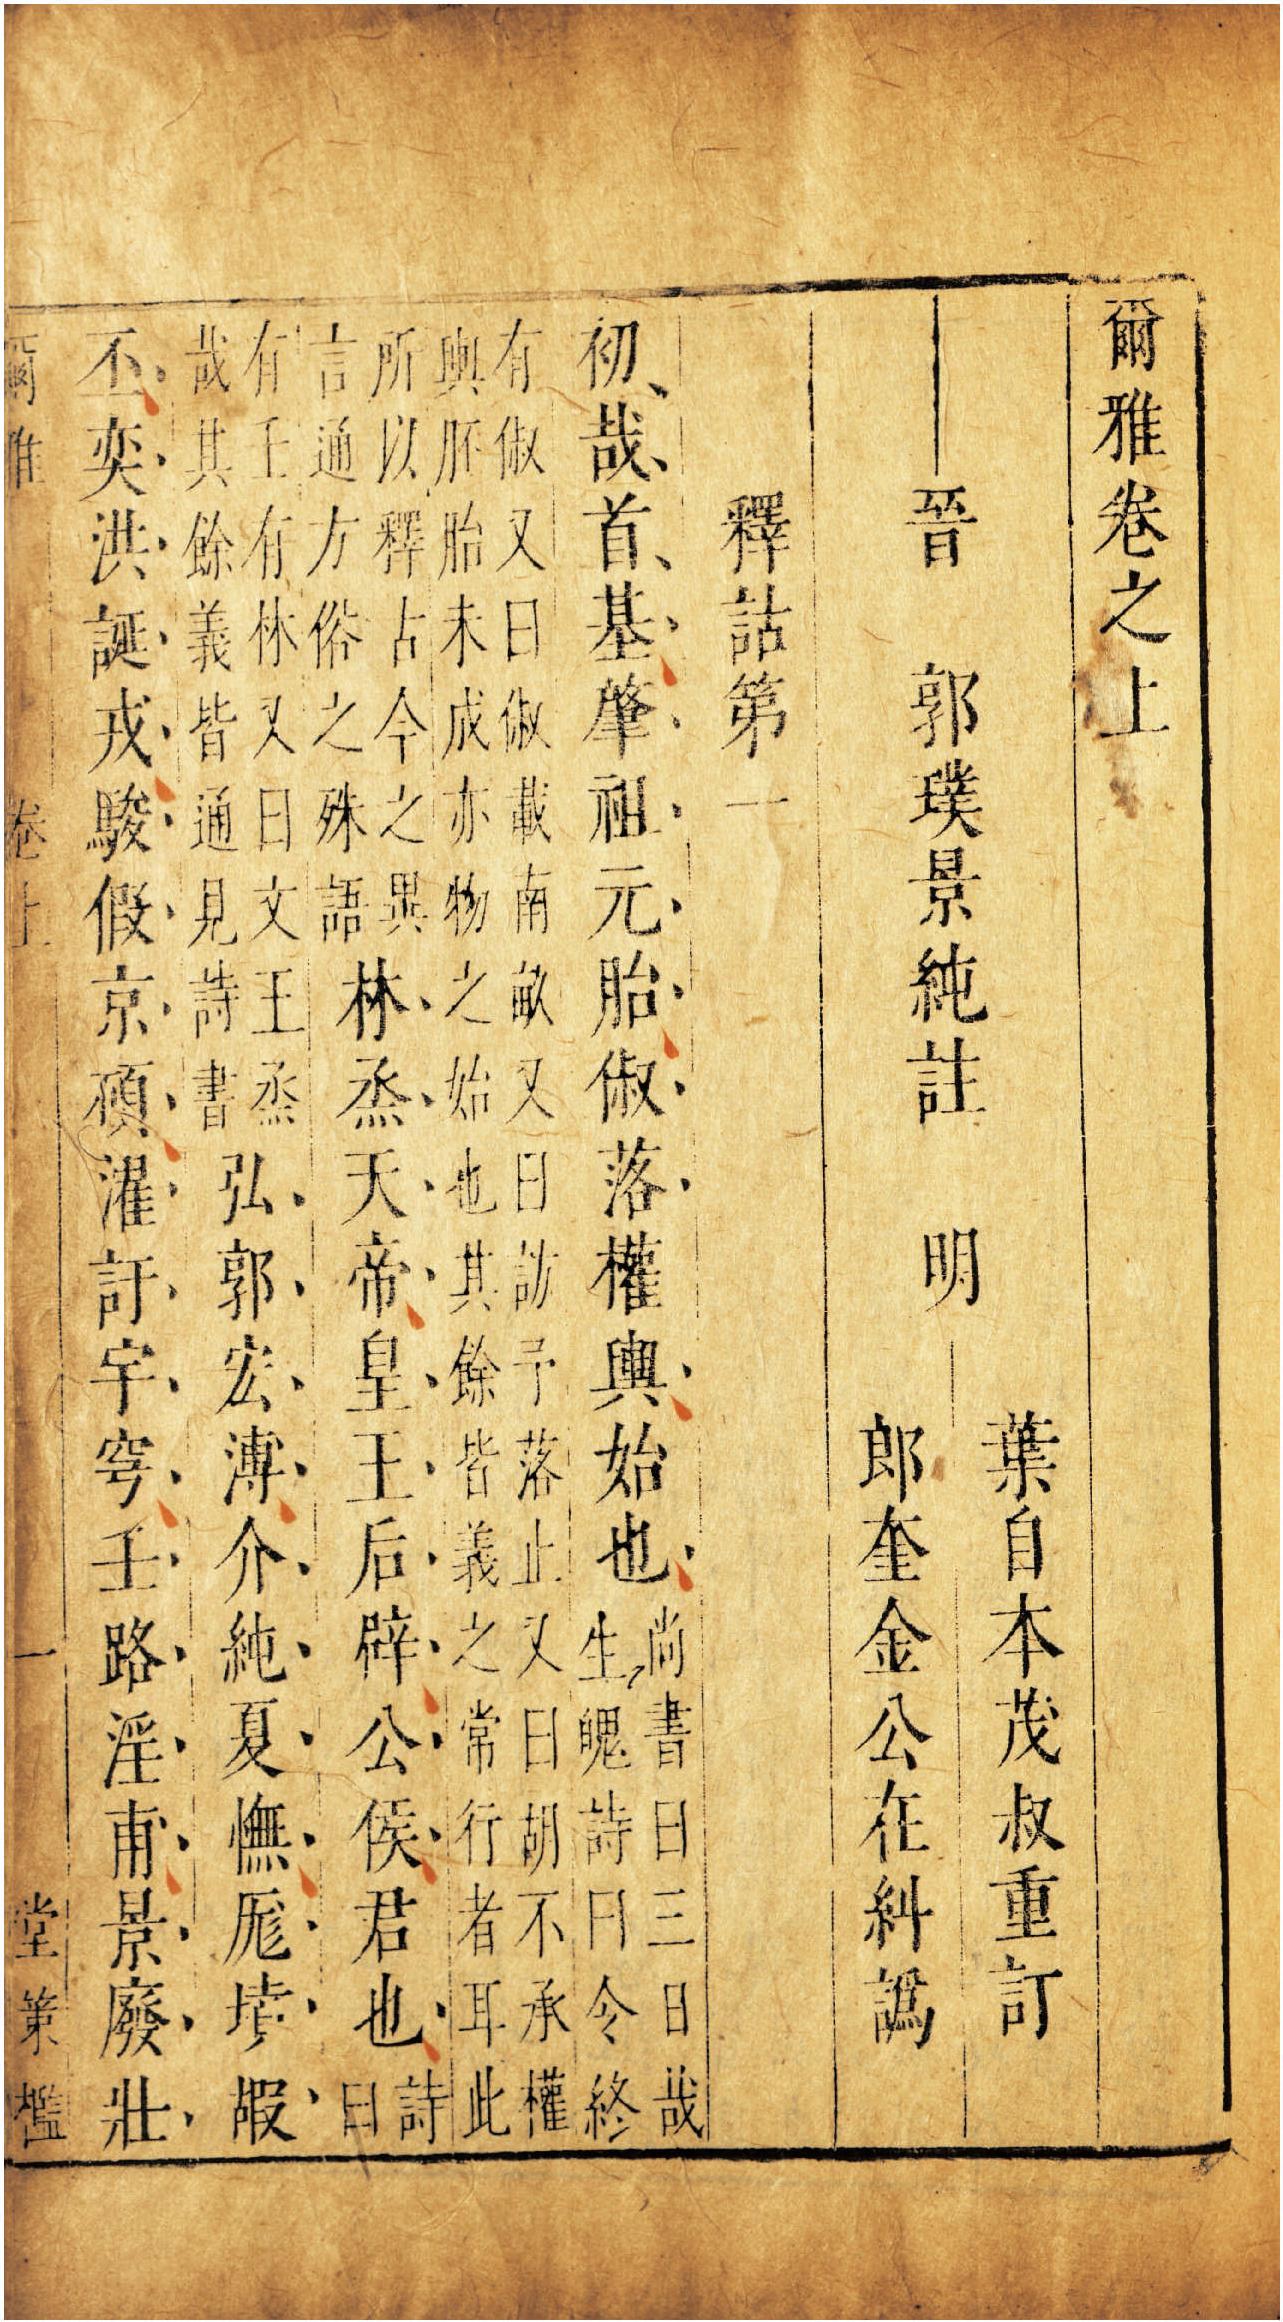 爾雅卷之上
晉 郭璞景純註 明 葉自本茂叔重訂
郎奎金公在糾譌
釋詁第一
初哉首基肇祖元胎俶落權輿始也 尚書曰三日哉
生魄詩曰令終
有俶又曰俶載南畝又曰訪予落止又曰胡不承權
輿胚胎未成亦物之始也其餘皆義之常行者耳此
所以釋古今之異
言通方俗之殊語
林烝天帝皇王后辟公侯君也 詩
曰
有壬有林又曰文王烝
哉其餘義皆通見詩書
弘郭宏溥介純夏憮厖墳嘏
丕奕洪誕戎駿假京碩濯訏宇穹壬路淫甫景廢壯
爾雅 卷上 一 堂策檻